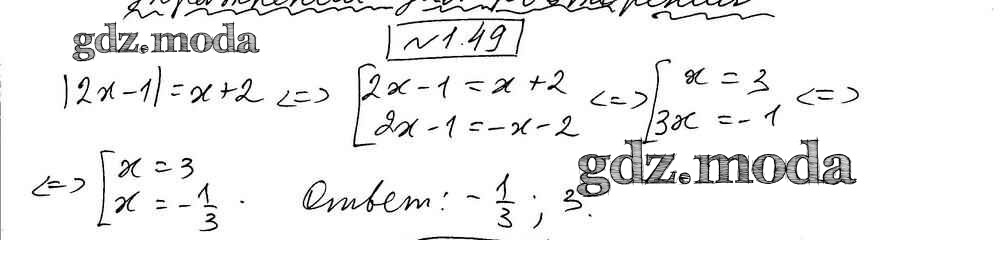 gdz.moda
№1.49
|2x-1|=x+2 <=> [2x-1=x+2 <=> [x=3 <=>
2x-1=-x-2 3x=-1
gdz.moda
<=> [x=3
x=-1/3. Ответ: -1/3; 3.